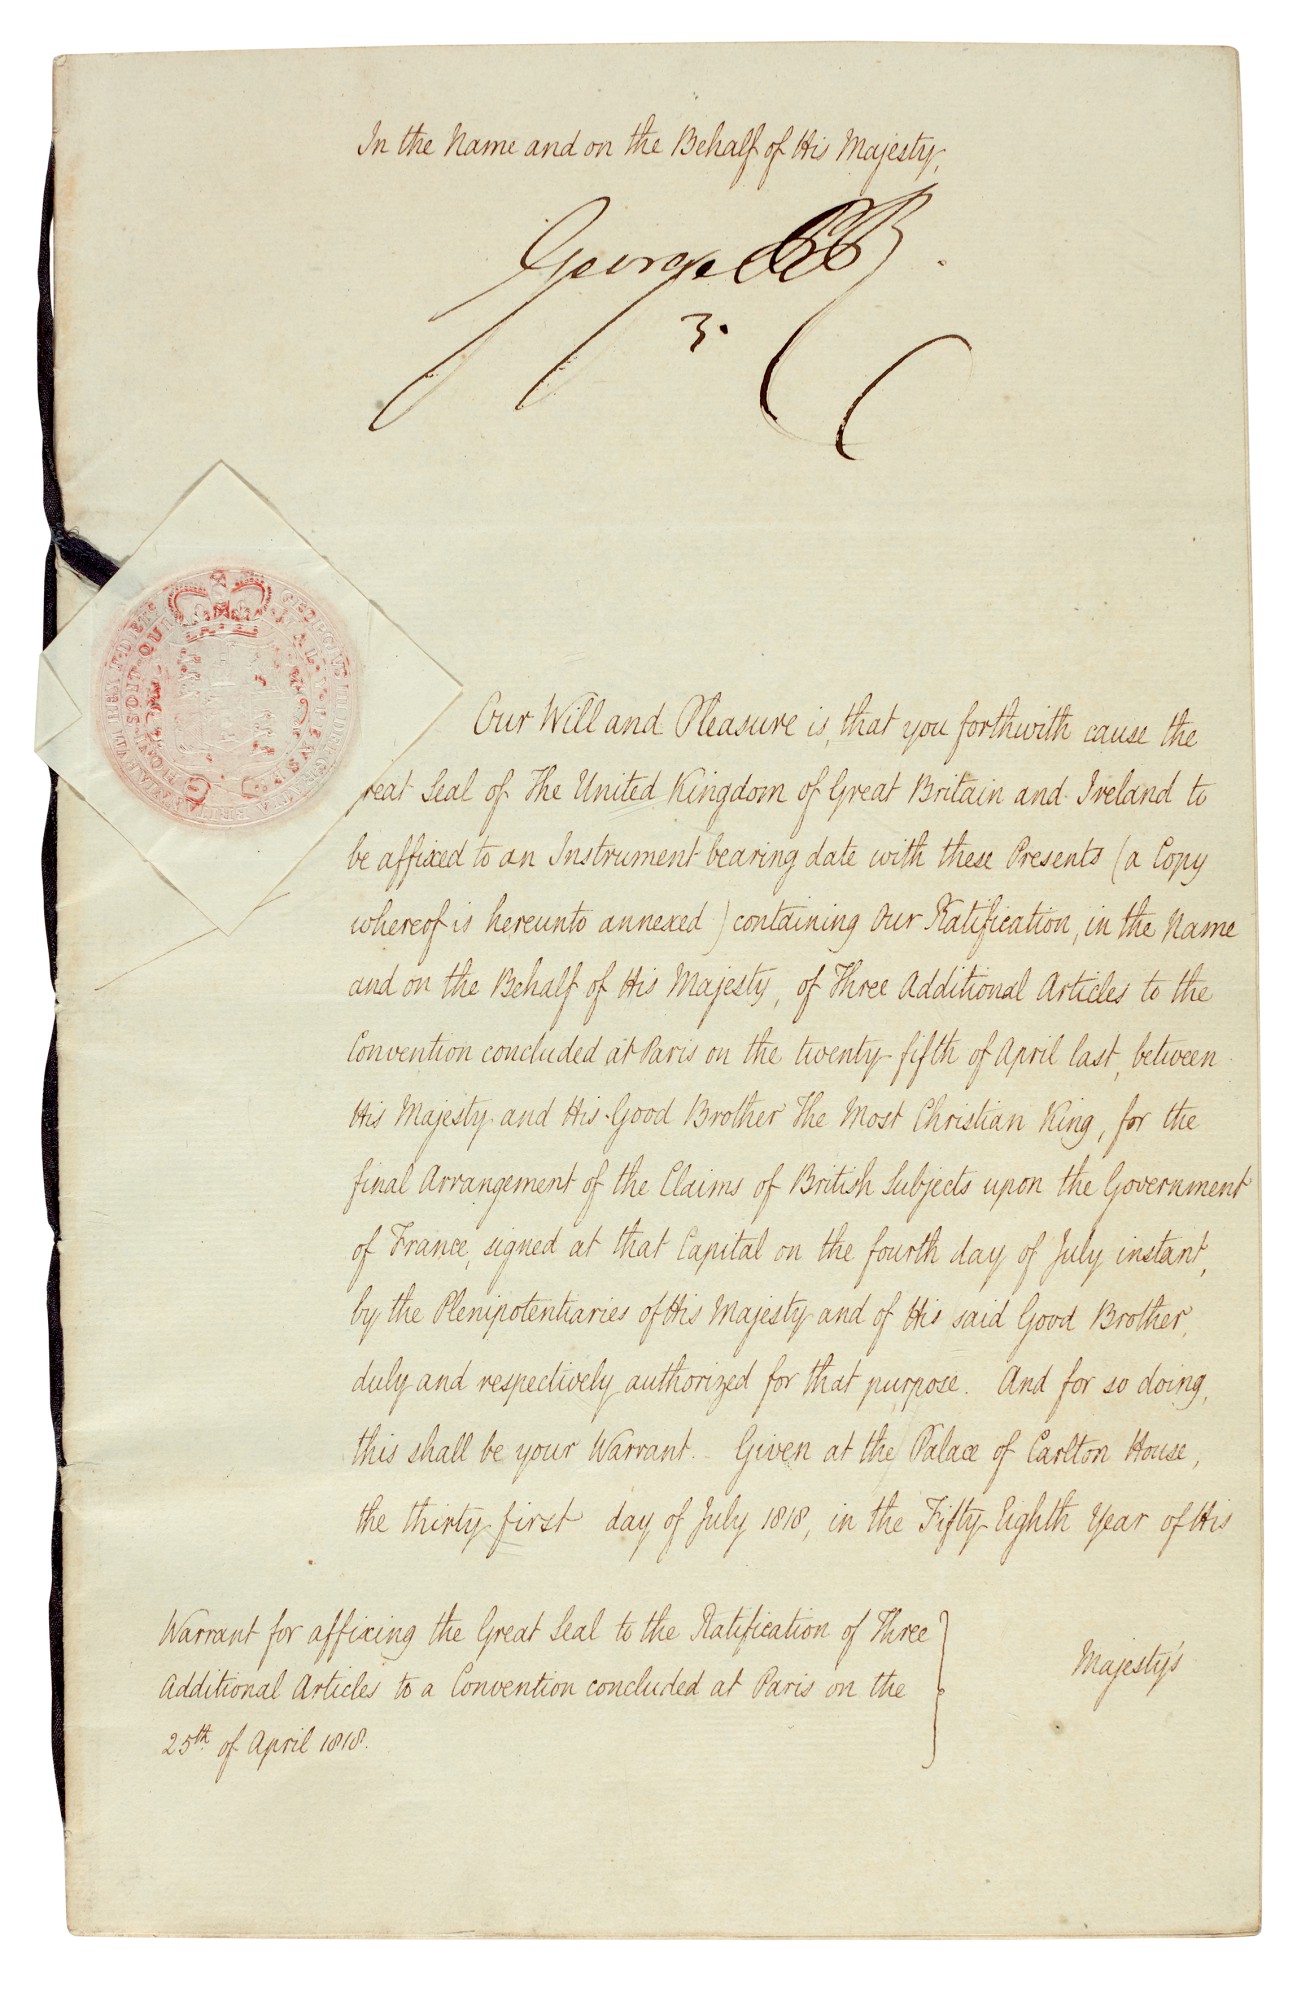 In the Name and on the Behalf of His Majesty,
George P R
3.
HONI SOIT QUI MAL Y PENSE
Our Will and Pleasure is, that you forthwith cause the
reat Seal of The United Kingdom of Great Britain and Ireland to
be affixed to an Instrument bearing date with these Presents (a Copy
whereof is hereunto annexed) containing Our Ratification, in the Name
and on the Behalf of His Majesty, of Three Additional Articles to the
Convention concluded at Paris on the twenty-fifth of April last, between
His Majesty and His Good Brother The Most Christian King, for the
final Arrangement of the Claims of British Subjects upon the Government
of France, signed at that Capital on the fourth day of July instant,
by the Plenipotentiaries of His Majesty and of His said Good Brother,
duly and respectively authorized for that purpose. And for so doing,
this shall be your Warrant. Given at the Palace of Carlton House,
the thirty first day of July 1818, in the Fifty-Eighth Year of His
Warrant for affixing the Great Seal to the Ratification of Three
Additional Articles to a Convention concluded at Paris on the
25th. of April 1818.
Majesty's